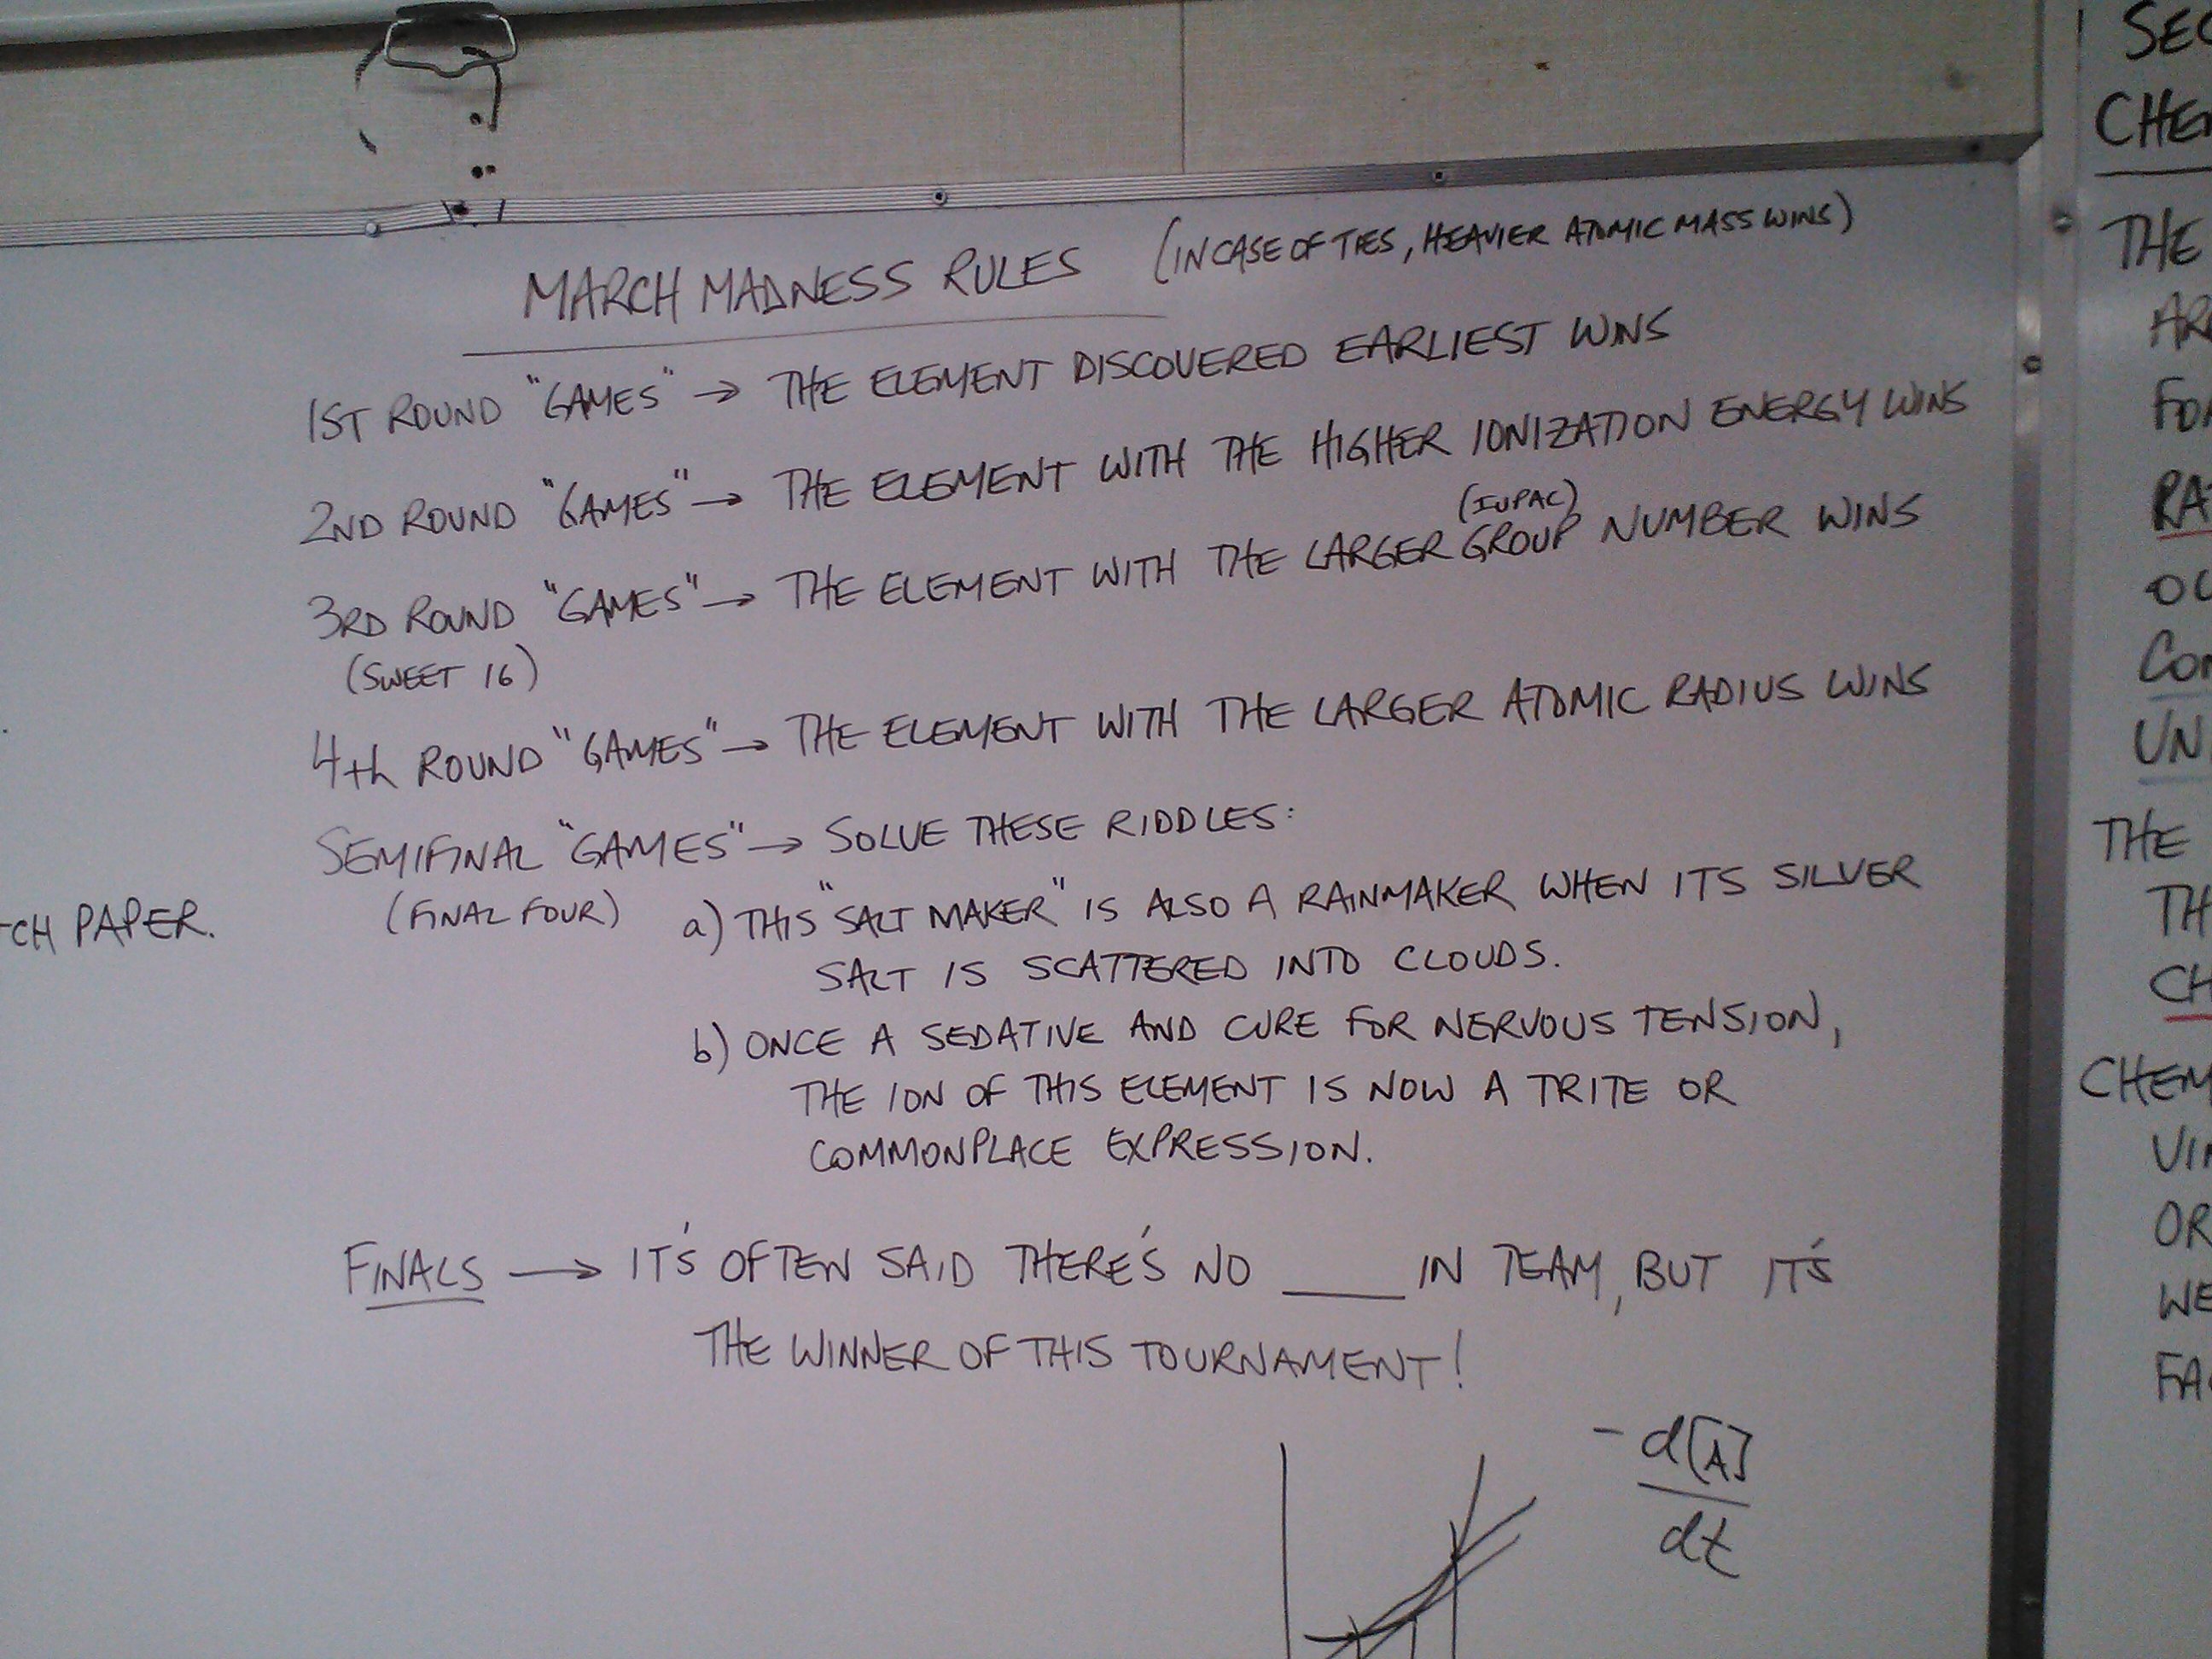 MARCH MADNESS RULES (IN CASE OF TIES, HEAVIER ATOMIC MASS WINS)
1ST ROUND "GAMES" → THE ELEMENT DISCOVERED EARLIEST WINS
2ND ROUND "GAMES" → THE ELEMENT WITH THE HIGHER IONIZATION ENERGY WINS
(IUPAC)
3RD ROUND "GAMES" → THE ELEMENT WITH THE LARGER GROUP NUMBER WINS
(SWEET 16)
4th ROUND "GAMES" → THE ELEMENT WITH THE LARGER ATOMIC RADIUS WINS
SEMIFINAL "GAMES" → SOLVE THESE RIDDLES:
(FINAL FOUR) a) THIS "SALT MAKER" IS ALSO A RAINMAKER WHEN ITS SILVER
SALT IS SCATTERED INTO CLOUDS.
b) ONCE A SEDATIVE AND CURE FOR NERVOUS TENSION,
THE ION OF THIS ELEMENT IS NOW A TRITE OR
COMMONPLACE EXPRESSION.
FINALS → IT'S OFTEN SAID THERE'S NO ____ IN TEAM, BUT IT'S
THE WINNER OF THIS TOURNAMENT!
-d[A]
dt
TCH PAPER.
SEC
CHE
THE
AR
FO
RA
OU
CO
UN
THE
TH
CH
CHEM
VI
OR
WE
FA